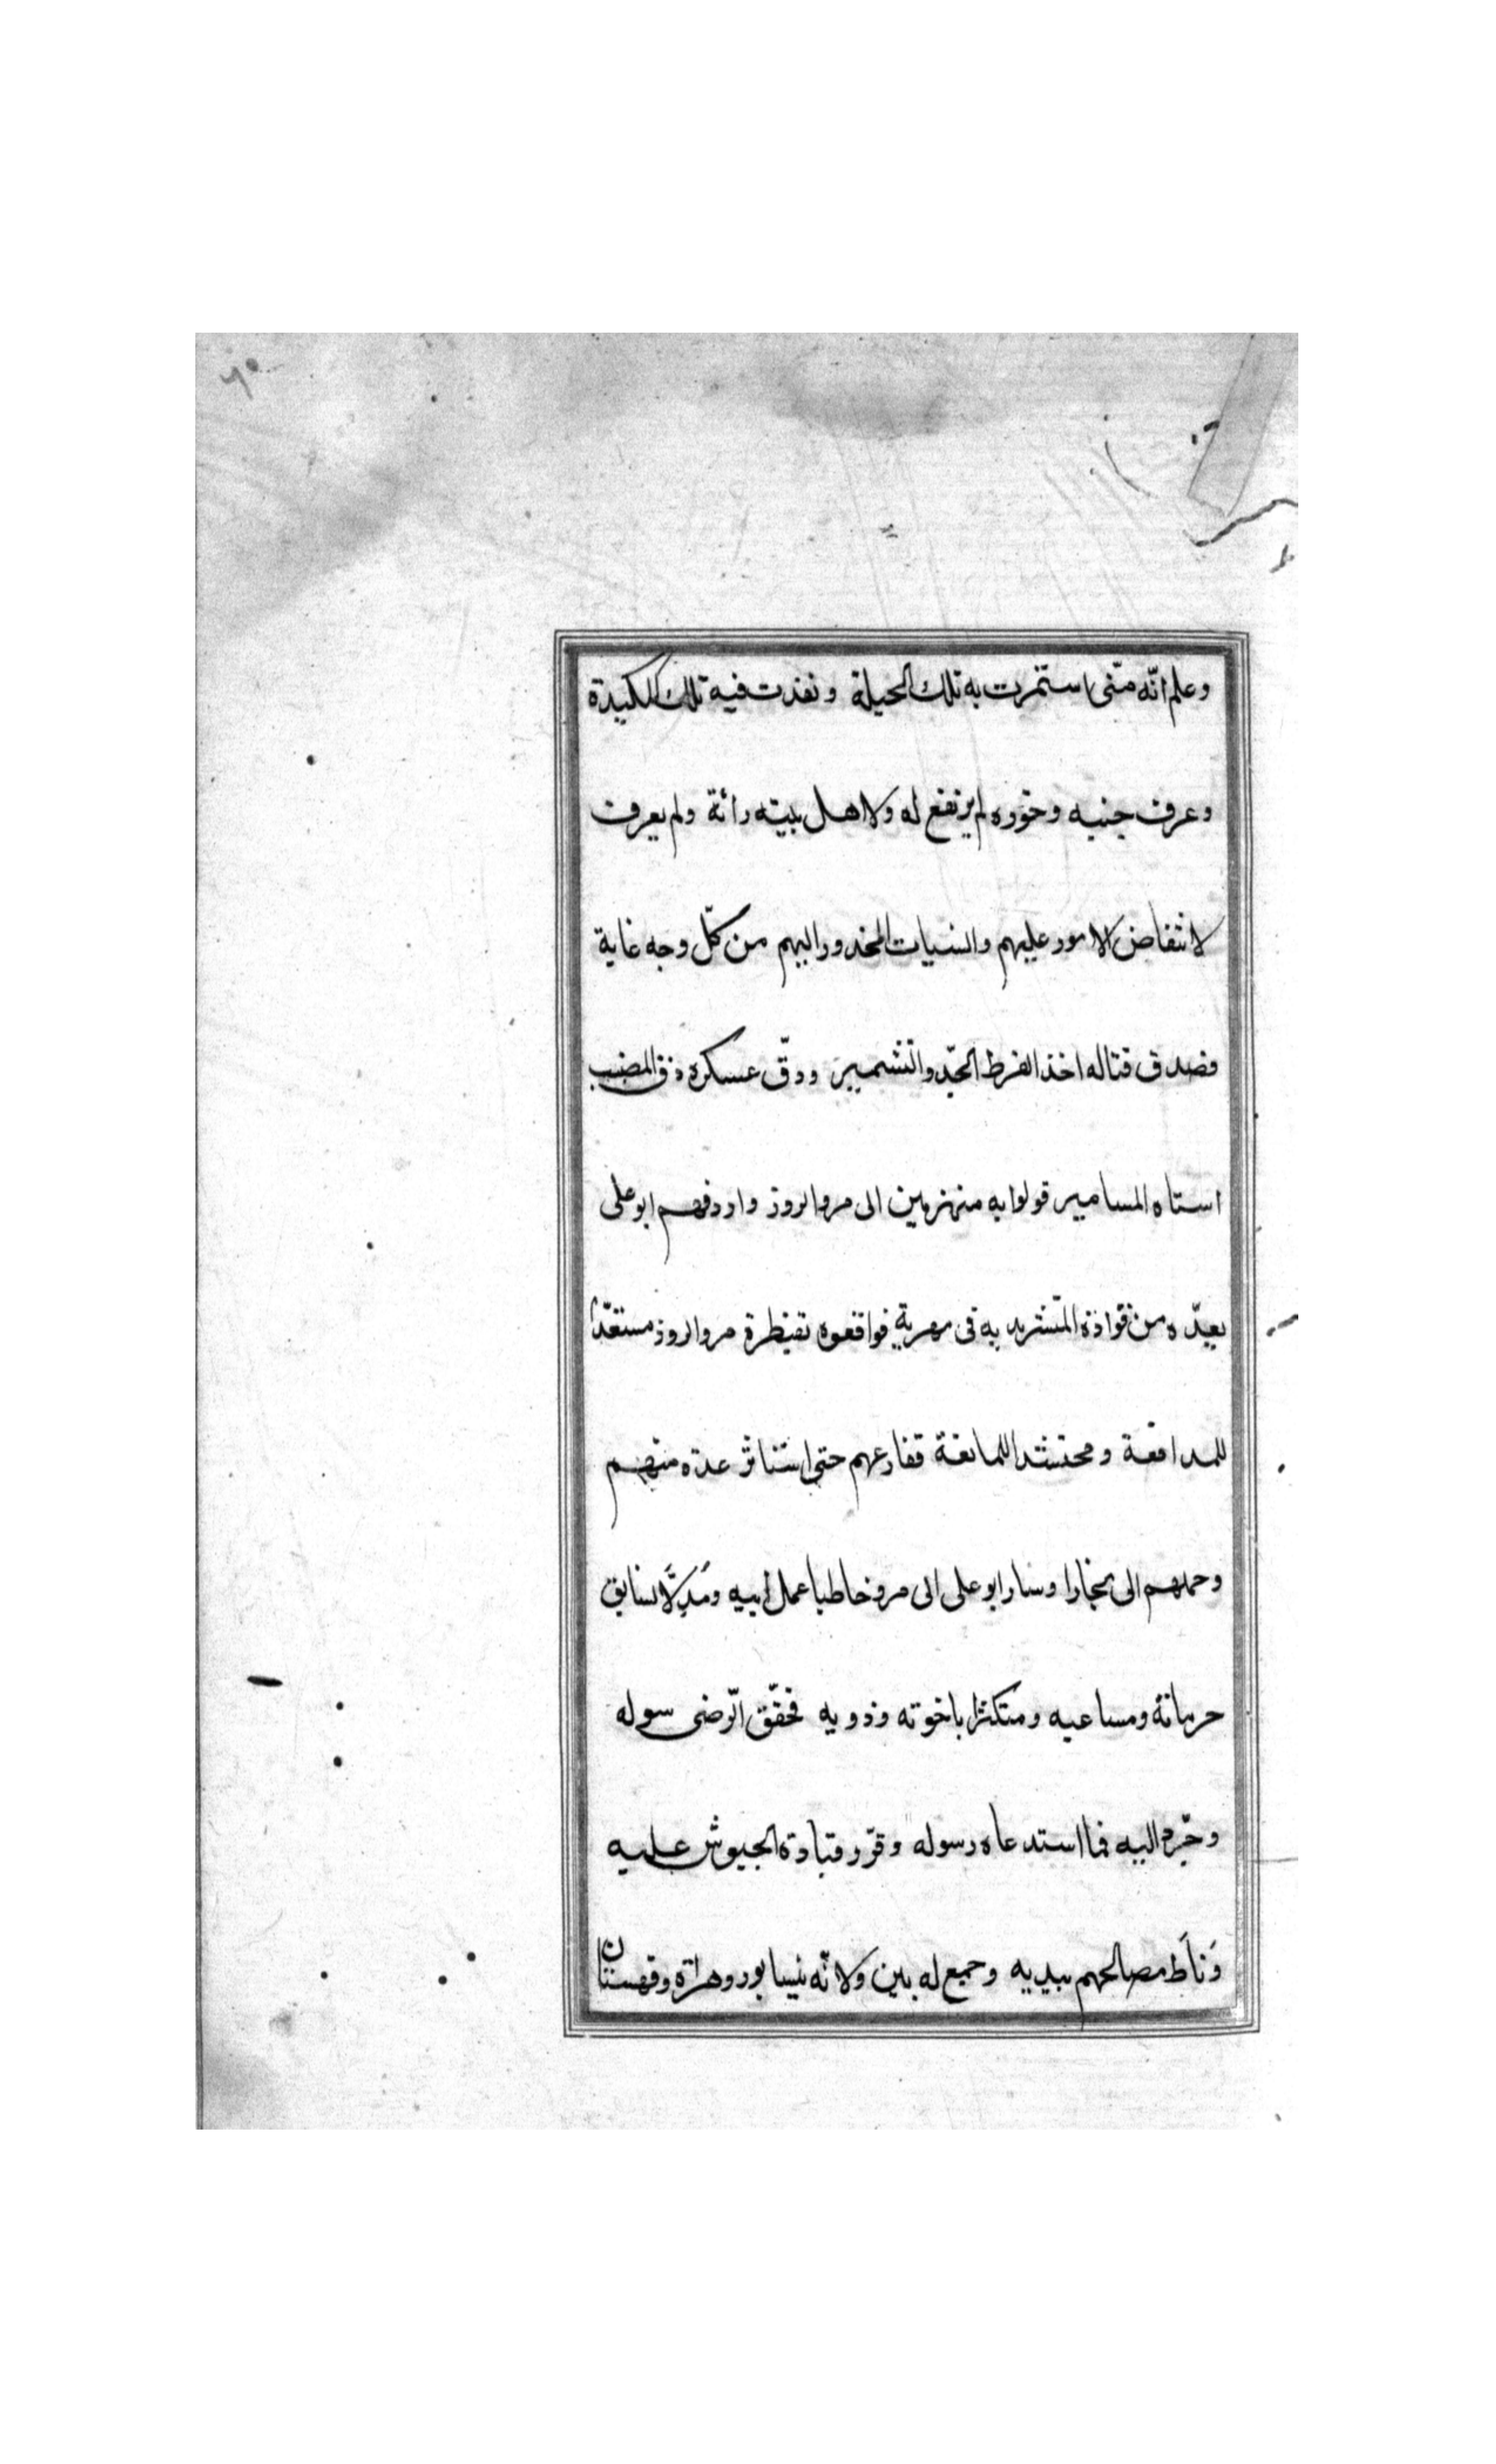 ٦٥
وعلم انّه متّى استمرت به تلك الحيلة ونفذت فيه تلك المكيدة
وعرف جنبه وخوّره لم يرتفع له ولاهل بيته رائة ولم يعرف
لانتفاض الامور عليهم والنسيات المخدور اليهم من كلّ وجه غاية
فصدق قتاله اخذ الفرط الجّد والتشمير ودقّ عسكره دق المضبب
استاه المسامير قولوا به منهزمين الى مروالروذ واردفهم ابوعلى
بعدّه من قواذه المتشربه به فى مهرية فواقعوه تقنطرة مروالروذ مستعدّا
للمدافعة ومحتشدا للمانعة فقارعهم حتى استناثر عدة منهم
وحملهم الى بخارا وسار ابوعلى الى مرو خاطبا عمل ابيه ومُدِلًّا بسابق
حرماته ومساعيه ومتكثرا باخوته وذويه فحقّق الرّضى سوله
وخبره اليه فما استدعاه رسوله وقرّر قيادة الجيوش عليه
وَناَط مصالحهم بيديه وجميع له بين ولاته نيسابور وهراة وقهستان